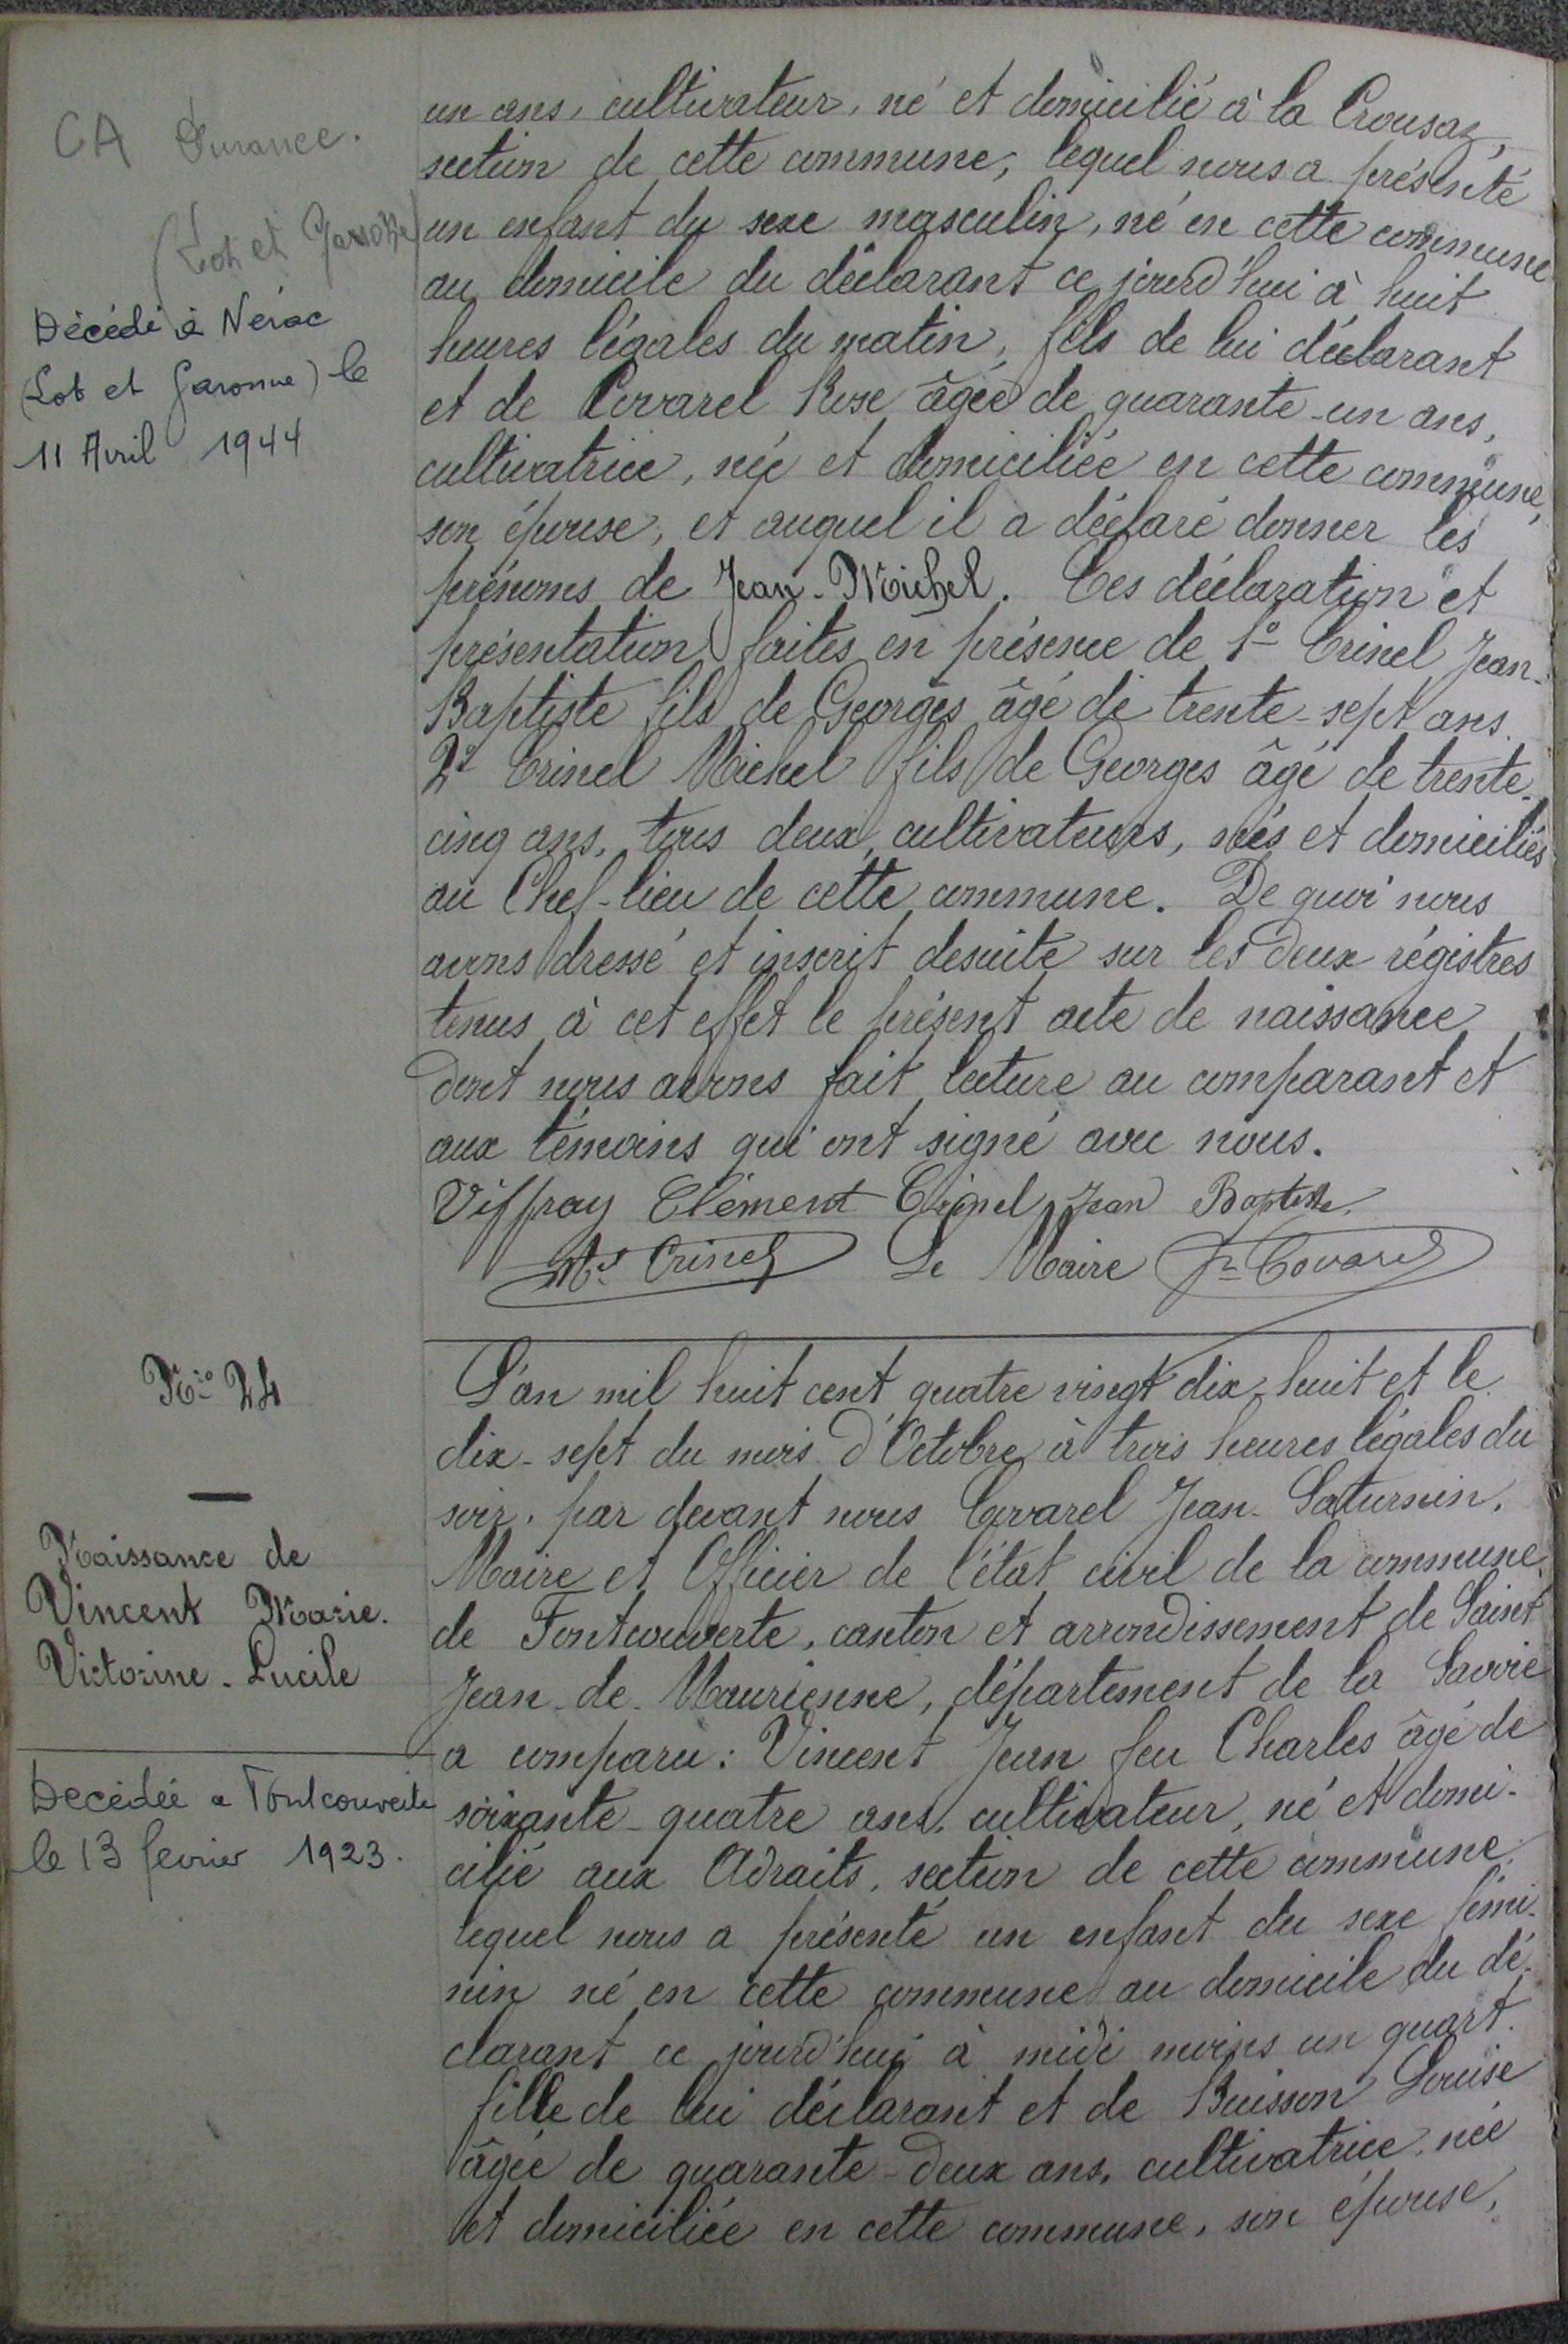 CA Durance.
(Lot et Garonne)
Décédé à Nérac
(Lot et Garonne) le
11 Avril 1944
un ans, cultivateur, né et domicilié à la Crousaz,
section de cette commune, lequel nous a présenté
un enfant du sexe masculin, né en cette commune
au domicile du déclarant ce jourd'hui à huit
heures légales du matin, fils de lui déclarant
et de Covarel Rose âgée de quarante-un ans,
cultivatrice, née et domiciliée en cette commune,
son épouse, et auquel il a déclaré donner les
prénoms de Jean-Michel. Ces déclaration et
présentation faites en présence de 1° Crinel Jean-
Baptiste fils de Georges âgé de trente-sept ans.
2° Crinel Michel fils de Georges âgé de trente-
cinq ans, tous deux cultivateurs, nés et domiciliés
au Chef-lieu de cette commune. De quoi nous
avons dressé et inscrit desuite sur les deux régistres
tenus à cet effet le présent acte de naissance
dont nous avons fait lecture au comparant et
aux témoins qui ont signé avec nous.
Viffray Clément Crinel Jean Baptiste
Crinel Le Maire Covarel
N° 24
Naissance de
Vincent Marie.
Victorine-Lucile
Decédée a Fontcouverte
le 13 fevrier 1923.
L'an mil huit cent quatre vingt dix-huit et le
dix-sept du mois d'Octobre à trois heures légales du
soir, par devant nous Covarel Jean-Saturnin,
Maire et Officier de l'état civil de la commune
de Fontcouverte, canton et arrondissement de Saint
Jean-de-Maurienne, département de la Savoie
a comparu: Vincent Jean feu Charles âgé de
soixante-quatre ans, cultivateur, né et domi-
cilié aux Adraits, section de cette commune
lequel nous a présenté un enfant du sexe fémi-
nin né en cette commune au domicile du dé-
clarant ce jourd'hui à midi moins un quart.
fille de lui déclarant et de Buisson Louise
âgée de quarante-deux ans, cultivatrice, née
et domiciliée en cette commune, son épouse,